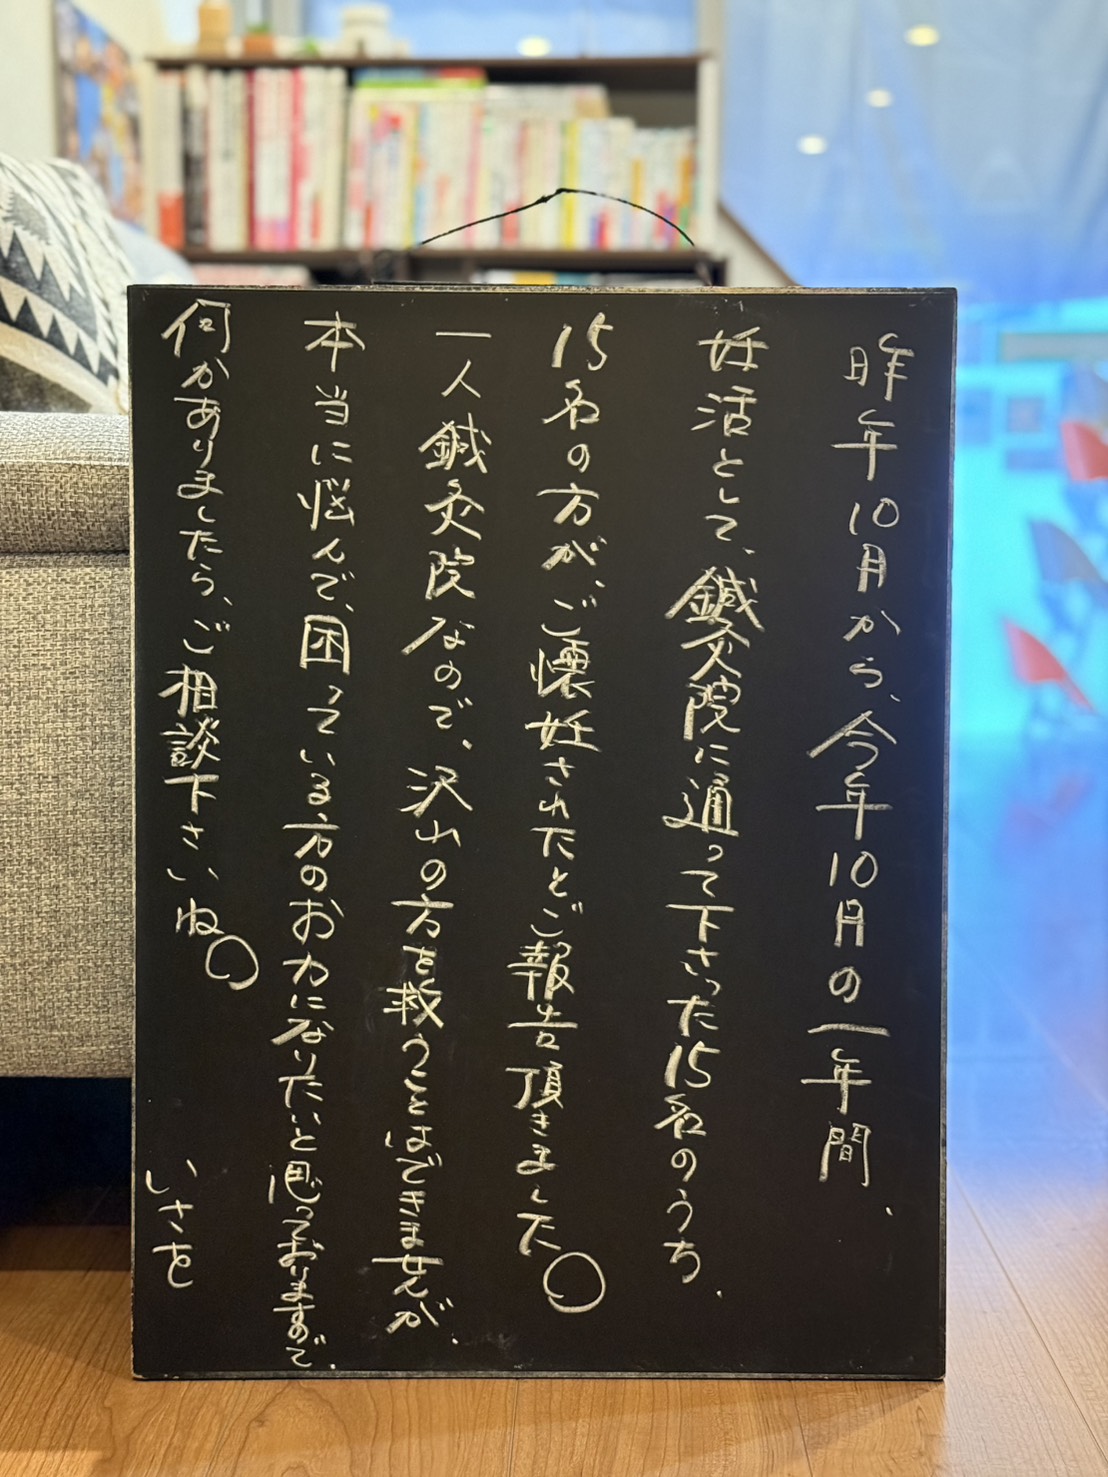 昨年10月から、今年10月の一年間、
妊活として、鍼灸院に通って下さった15名のうち、
15名の方が、ご懐妊されたとご報告頂きました。
一人鍼灸院なので、沢山の方を救うことはできませんが、
本当に悩んで、困っている方のお力になりたいと思っておりますので、
何かありましたら、ご相談下さいね。
いさを